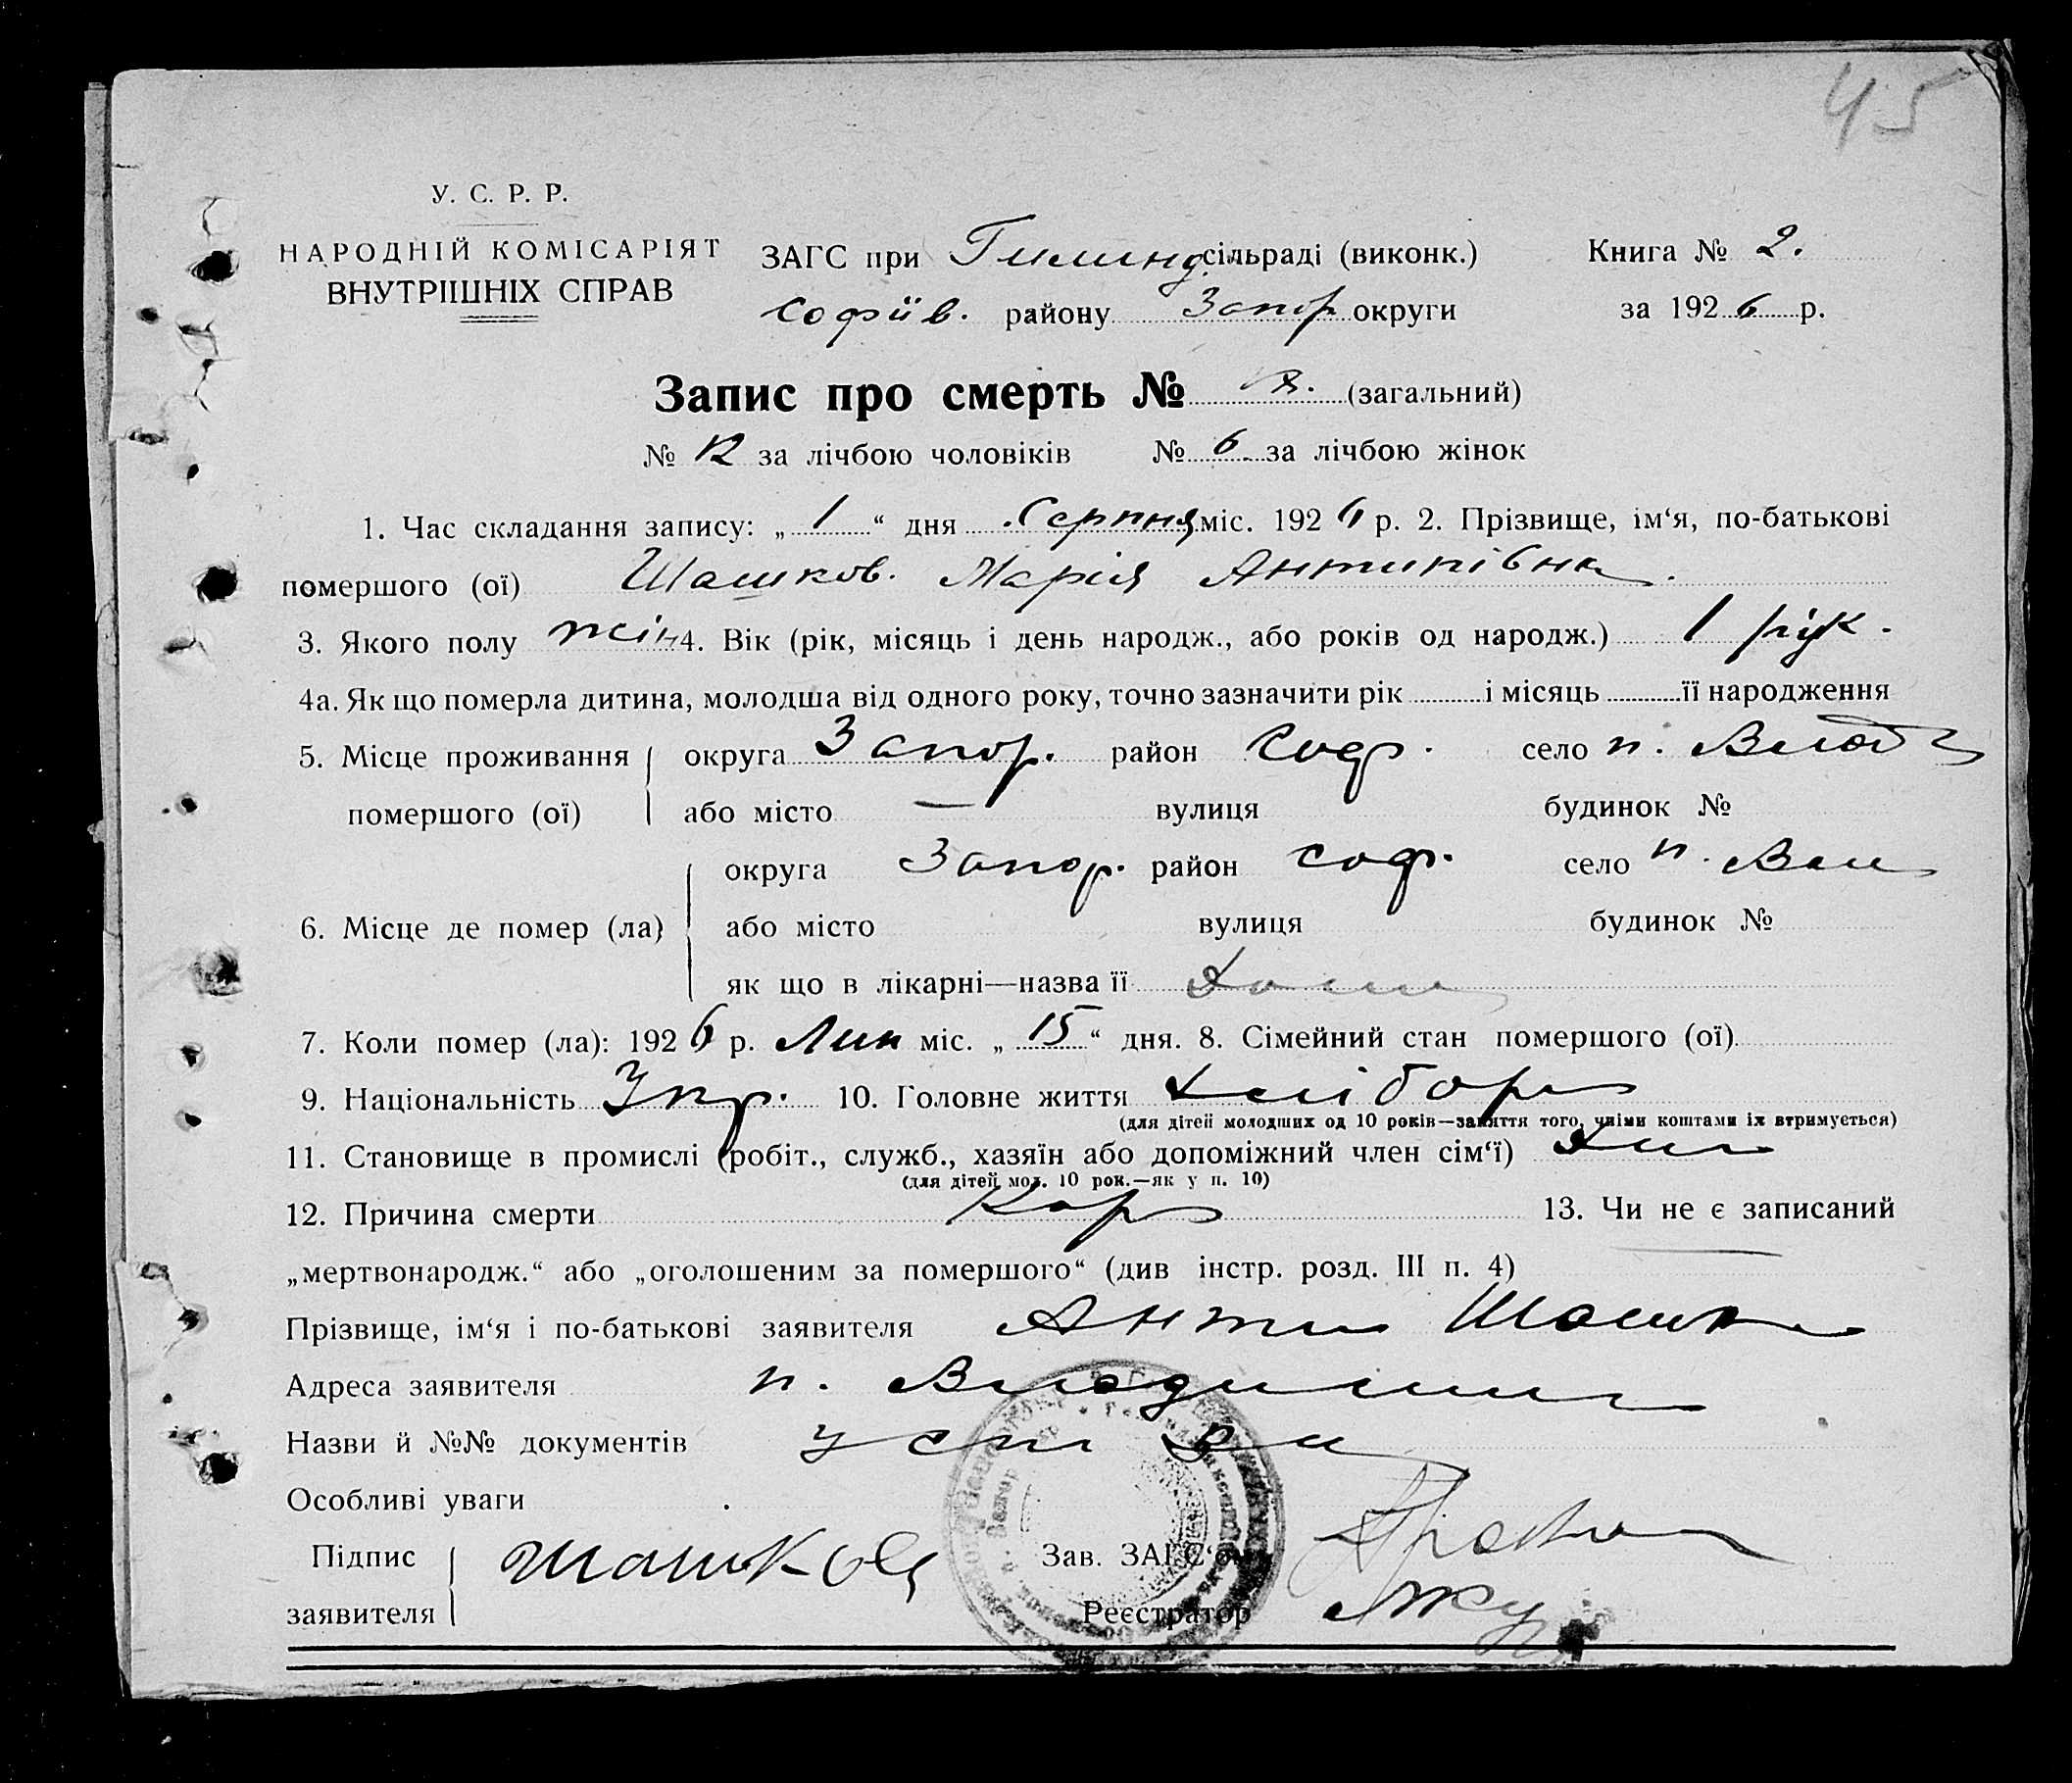 45
У. С. Р. Р.
НАРОДНІЙ КОМІСАРІЯТ
ВНУТРІШНІХ СПРАВ
ЗАГС при сільраді (виконк.) Книга № 2.
Софіїв. району Запор округи за 1926 р.
Запис про смерть № (загальний)
№ 12 за лічбою чоловіків № 6 за лічбою жінок
1. Час складання запису: „ 1 “ дня Серпня міс. 1926 р. 2. Прізвище, ім‘я, по-батькові
помершого (ої) Шашков. Марія Антипівна.
3. Якого полу жін 4. Вік (рік, місяць і день народж., або років од народж.) 1 рік.
4а. Як що померла дитина, молодша від одного року, точно зазначити рік і місяць її народження
5. Місце проживання округа Запор. район Соф. село п.
помершого (ої) або місто — вулиця будинок №
округа Запор. район Соф. село п.
6. Місце де помер (ла) або місто вулиця будинок №
як що в лікарні—назва її Дома
7. Коли помер (ла): 1926 р. Лип міс. „ 15 “ дня. 8. Сімейний стан помершого (ої)
9. Національність Укр. 10. Головне життя Хлібороб
(для дітей молодших од 10 років—заняття того, чиїми коштами їх втримується)
11. Становище в промислі (робіт., служб., хазяїн або допоміжний член сім‘ї)
(для дітей мол. 10 рок.—як у п. 10)
12. Причина смерти Кор 13. Чи не є записаний
„мертвонародж.“ або „оголошеним за помершого“ (див інстр. розд. III п. 4)
Прізвище, ім‘я і по-батькові заявителя Антип Шашк
Адреса заявителя п.
Назви й №№ документів
Особливі уваги
Підпис Шашков Зав. ЗАГС‘ом
заявителя Реєстратор